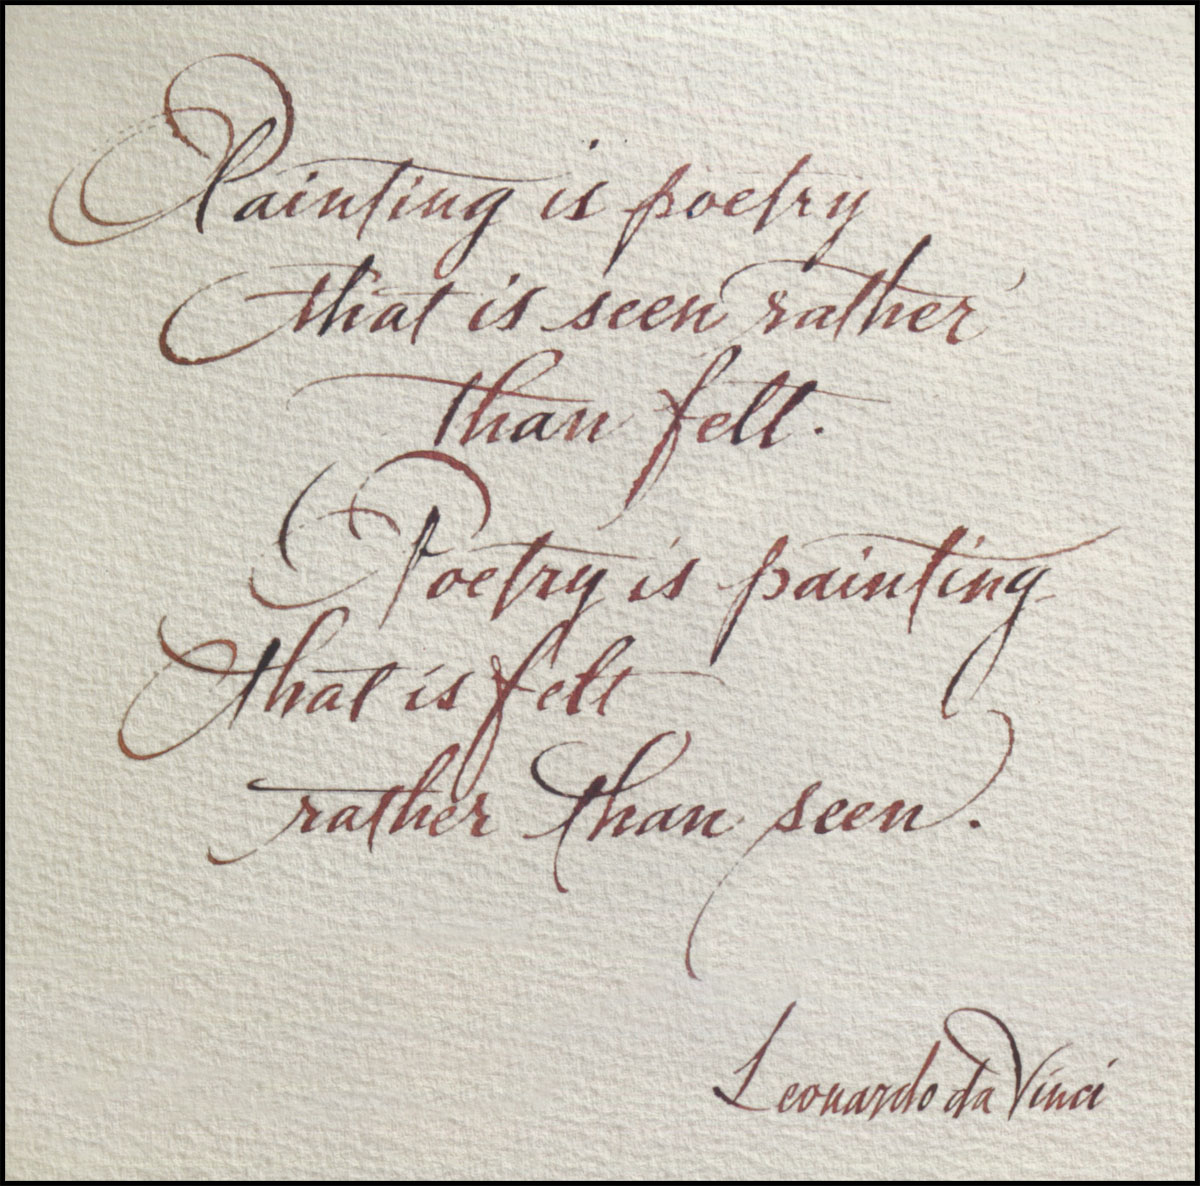 Painting is poetry
that is seen rather
than felt.
Poetry is painting
that is felt
rather than seen.
Leonardo da Vinci